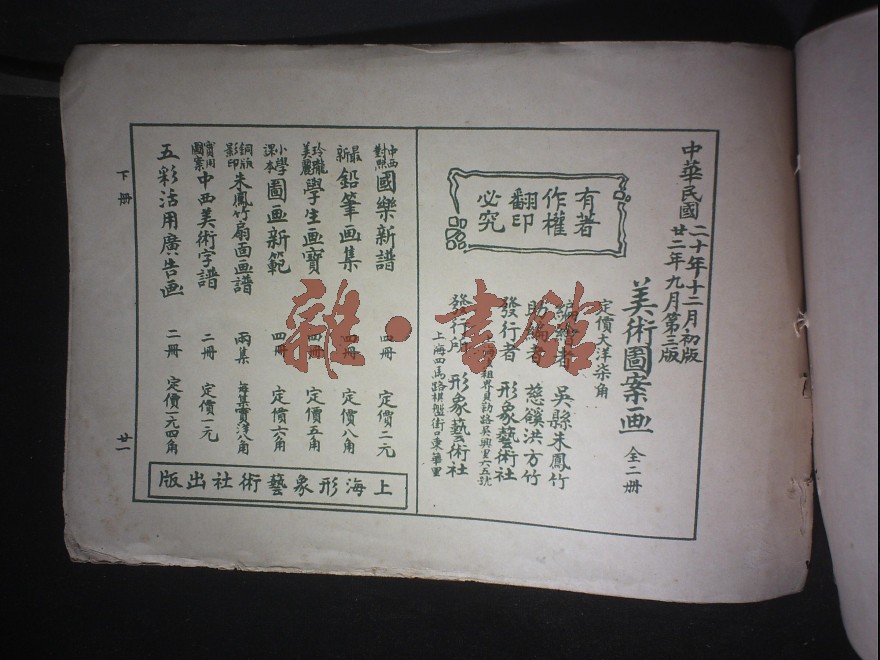 中華民國
二十年十二月初版
廿二年九月第三版
美術圖案画 全二册
定價大洋柒角
編繪者 吳縣朱鳳竹
助編者 慈谿洪方竹
發行者 形象藝術社
租界貝勒路吳興里六五號
發行所 形象藝術社
上海四馬路棋盤街口東華里
有著
作權
翻印
必究
中西對照 國樂新譜 四册 定價二元
最新 鉛筆画集 四册 定價八角
玲瓏美麗 學生画寶 四册 定價五角
小學課本 圖画新範 四册 定價六角
銅版影印 朱鳳竹扇面画譜 兩集 每集實洋八角
實用圖案 中西美術字譜 二册 定價一元
五彩活用廣告画 二册 定價一元四角
上海形象藝術社出版
下册
廿一
雜·書館